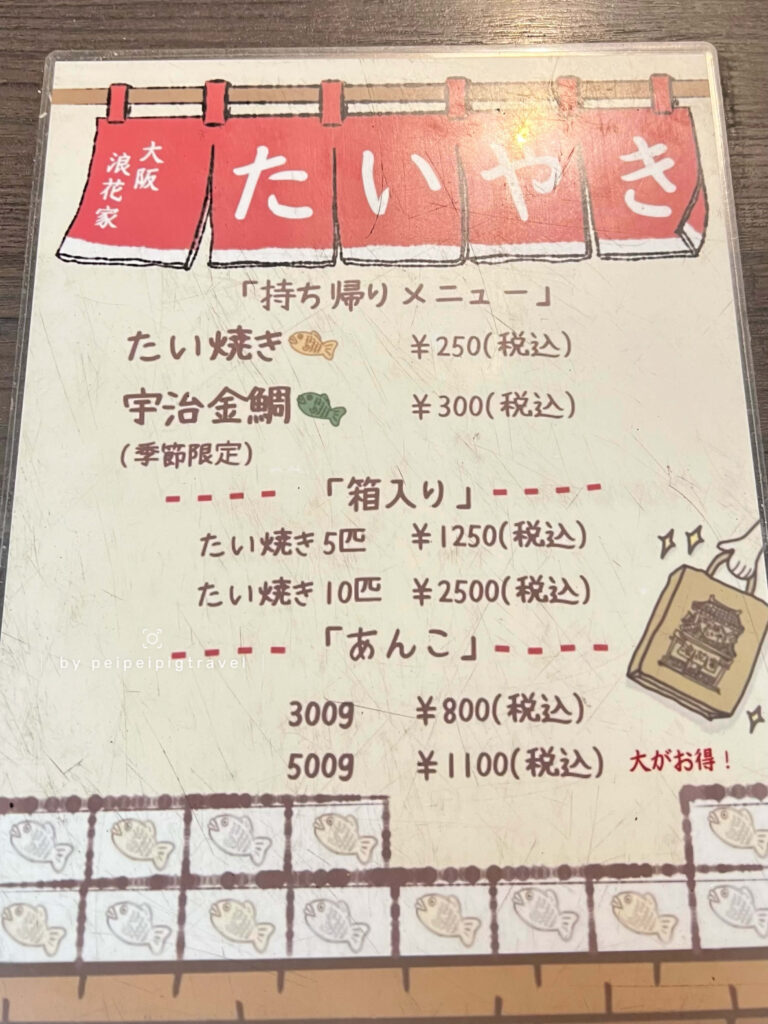 大阪
浪花家
たいやき
「持ち帰りメニュー」
たい焼き ¥250(税込)
宇治金鯛 ¥300(税込)
(季節限定)
「箱入り」
たい焼き5匹 ¥1250(税込)
たい焼き10匹 ¥2500(税込)
「あんこ」
by peipeipigtravel
300g ¥800(税込)
500g ¥1100(税込) 大がお得！